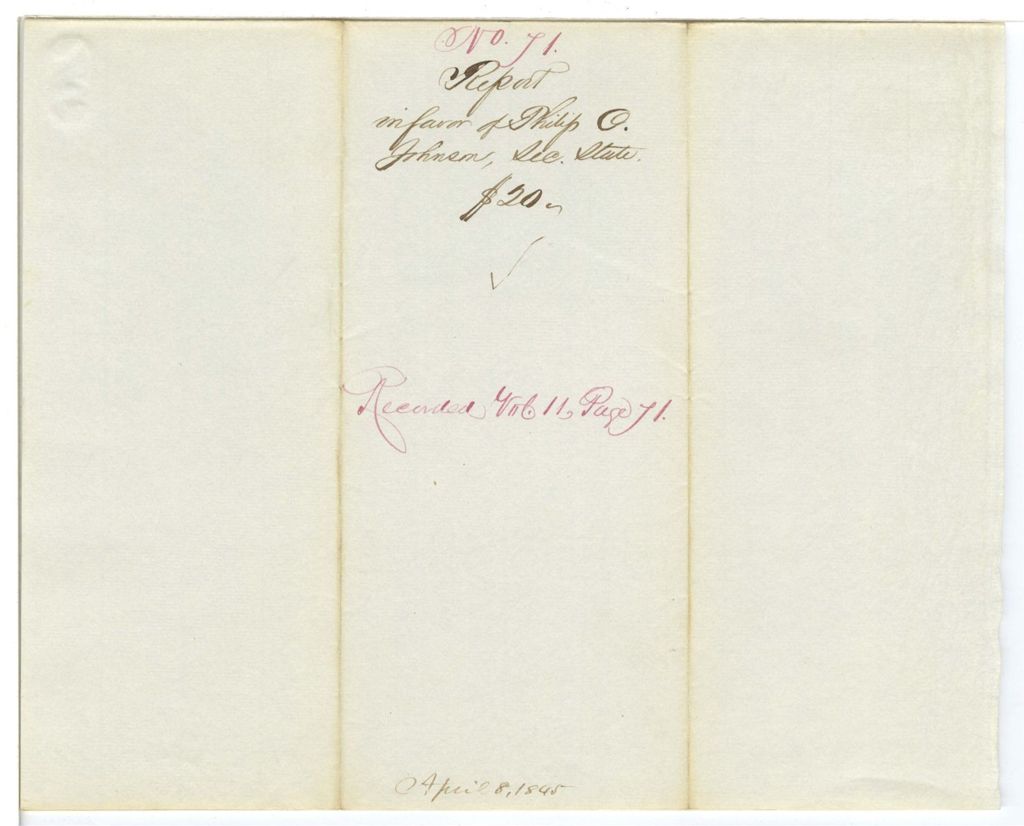 No. 71.
Report
in favor of Philip C.
Johnson, Sec. State.
$20
Recorded Vol. 11, Page 71.
April 8, 1845